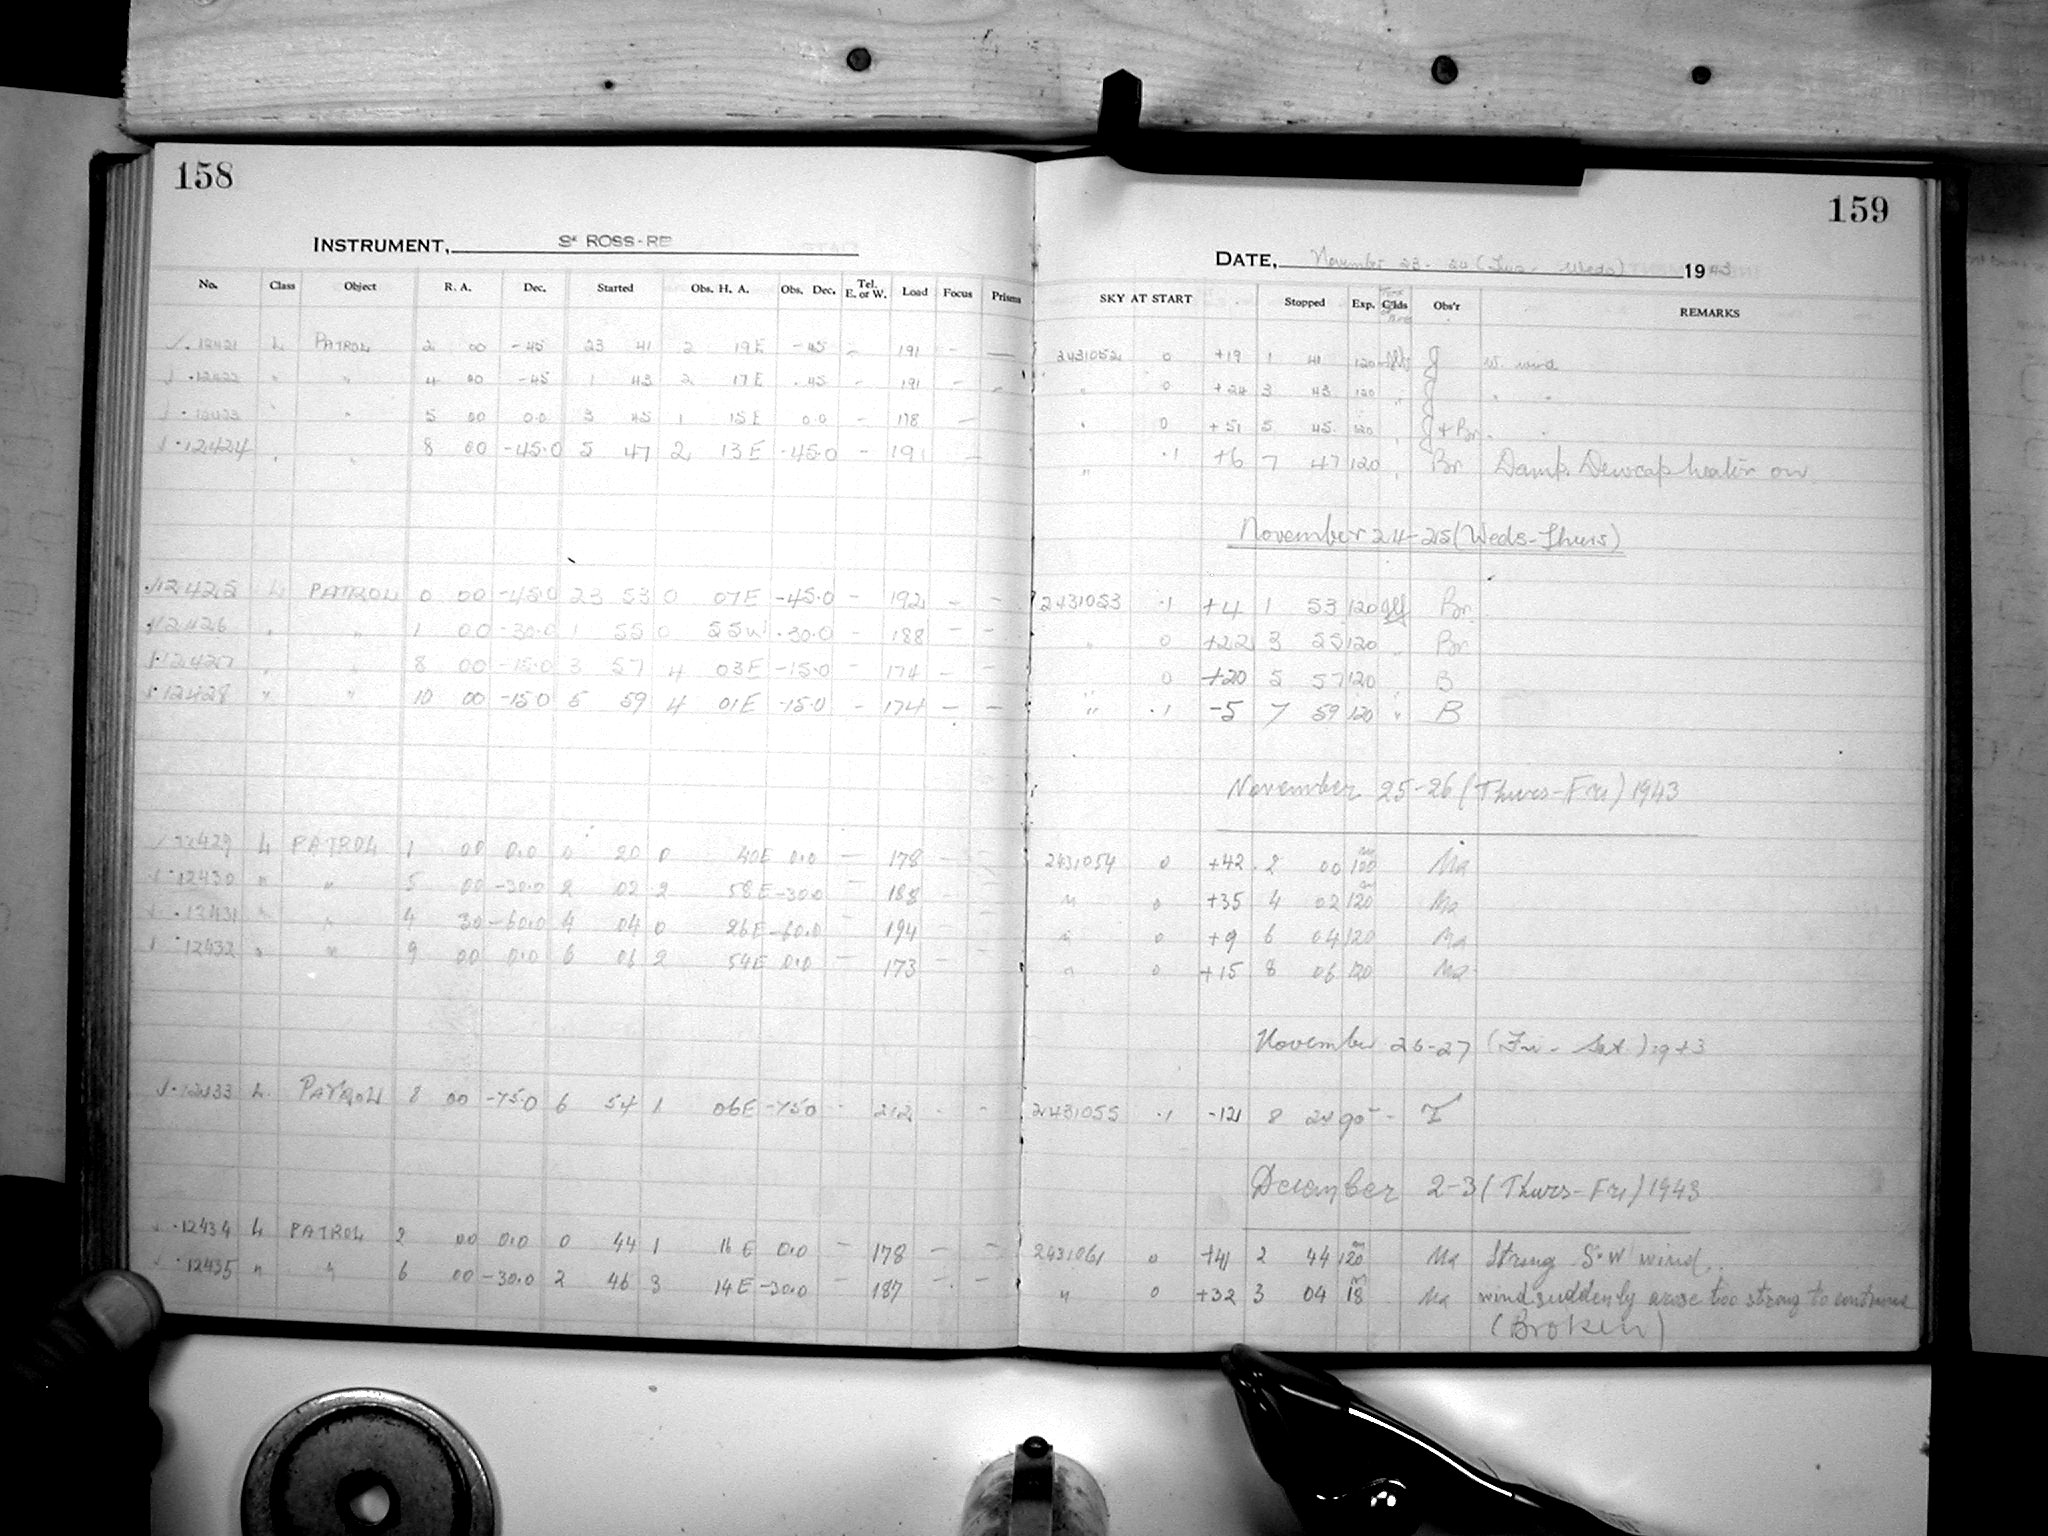 158
INSTRUMENT, ROSS-RB
No. Class Object R. A. Dec. Started Obs. H. A. Obs. Dec. Tel. E. or W. Load Focus Prisms
12421 L PATROL 2 00 -45 23 41 2 19E -45 - 191 - -
12422 " " 4 00 -45 1 43 2 17E -45 - 191 - -
12423 " " 5 00 0.0 3 45 1 15E 0.0 - 178 -
12424 " " 8 00 -45.0 5 47 2 13E -45.0 - 191 -
12425 L PATROL 0 00 -45.0 23 53 0 07E -45.0 - 192 - -
12426 " " 1 00 -30.0 1 55 0 55W -30.0 - 188 - -
12427 " " 8 00 -15.0 3 57 4 03E -15.0 - 174 - -
12428 " " 10 00 -15.0 5 59 4 01E -15.0 - 174 - -
12429 L PATROL 1 00 0.0 0 20 0 40E 0.0 - 178 - -
12430 " " 5 00 -30.0 2 02 2 58E -30.0 - 188 - -
12431 " " 4 30 -60.0 4 04 0 26E -60.0 - 194 - -
12432 " " 9 00 0.0 6 06 2 54E 0.0 - 173 - -
12433 L. PATROL 8 00 -75.0 6 54 1 06E -75.0 - 212 - -
12434 L PATROL 2 00 0.0 0 44 1 16E 0.0 - 178 - -
12435 " " 6 00 -30.0 2 46 3 14E -30.0 - 187 - -
159
DATE, November 23-24 (Tues-Weds) 1943
SKY AT START Stopped Exp. C'lds Obs'r REMARKS
2431052 0 +19 1 41 120 J W. wind
" 0 +24 3 43 120 " J " "
" 0 +51 5 45 120 " J+Br " "
" .1 +6 7 47 120 " Br Damp. Dewcap heater on
November 24-25 (Weds-Thurs)
2431053 .1 +4 1 53 120 Br.
" 0 +22 3 55 120 " Br
" 0 +20 5 57 120 " B
" .1 -5 7 59 120 " B
November 25-26 (Thurs-Fri) 1943
2431054 0 +42 2 00 100 Ma
" 0 +35 4 02 120 Ma
" 0 +9 6 04 120 Ma
" 0 +15 8 06 120 Ma
November 26-27 (Fri-Sat.) 1943
2431055 .1 -12 8 24 90 -
December 2-3 (Thurs-Fri) 1943
2431061 0 +41 2 44 120 Ma Strong S.W wind.
" 0 +32 3 04 18 Ma wind suddenly arose too strong to continue
(Broken)